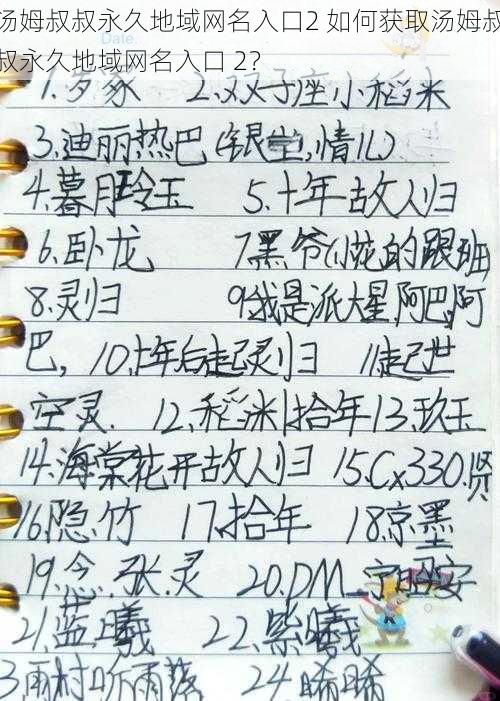 汤姆叔叔永久地域网名入口2 如何获取汤姆叔
叔永久地域网名入口 2?
1.岁豕 2.双子座小稻米
3.迪丽热巴(银堂,情儿)
4.暮月玲玉 5.十年故人归
6.卧龙 7.黑爷(1)花的跟班
8.灵归 9.我是派大星阿巴,阿
巴, 10.十年后起灵归 11.起世
空灵. 12.稻米|拾年13.玖玉
14.海棠花开故人归 15.Cx330.贤
16.隐.竹 17.拾年 18.京墨
19. .张.灵 20.DM_宁 安
21.蓝曦 22.紫曦
3.雨村听雨落 24.晞晞